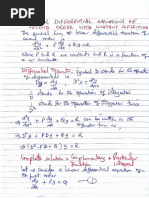 LINEAR DIFFERENTIAL EQUATIONS OF
SECOND ORDER WITH CONSTANT COEFFICIENTS
The general form of linear differential equation of
second order is
d²y/dx² + P dy/dx + Qy = R
where P and Q are constants and R is a function of
x or constant.
Differential operator: Symbol D stands for the operation
of differentiation i.e.
Dy = dy/dx, D²y = d²y/dx²
1/D stands for the operation of integration
1/D² stands for the operation of integration
twice.
d²y/dx² + P dy/dx + Qy = R
⇒ D²y + PDy + Qy = R
⇒ (D² + PD + Q)y = R
Complete solution = Complementary + Particular
Function Integral
Let us consider a linear differential equation of
the first order
dy/dx + Py = Q